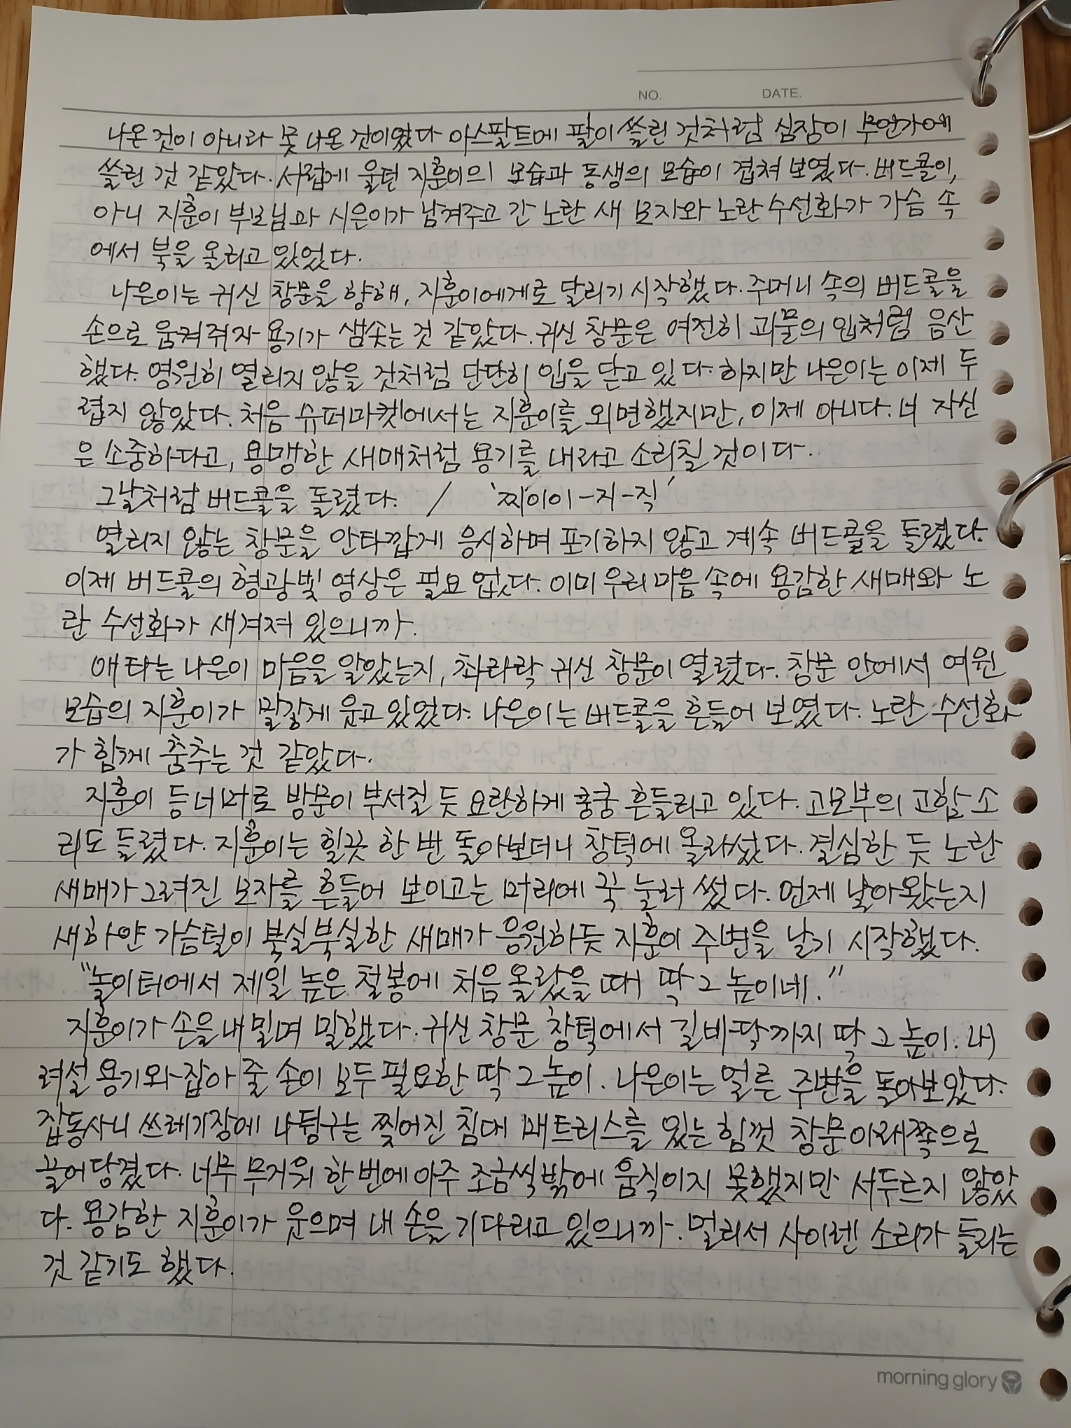 NO. DATE.
나온 것이 아니라 못 나온 것이었다 아스팔트에 팔이 쓸린 것처럼 심장이 무언가에
쓸린 것 같았다. 서럽게 울던 지훈이의 모습과 동생의 모습이 겹쳐 보였다. 버드콜이,
아니 지훈이 부모님과 시은이가 남겨주고 간 노란 새 모자와 노란 수선화가 가슴 속
에서 북을 울리고 있었다.
나은이는 귀신 창문을 향해, 지훈이에게로 달리기 시작했다. 주머니 속의 버드콜을
손으로 움켜쥐자 용기가 샘솟는 것 같았다. 귀신 창문은 여전히 괴물의 입처럼 음산
했다. 영원히 열리지 않을 것처럼 단단히 입을 닫고 있다. 하지만 나은이는 이제 두
렵지 않았다. 처음 슈퍼마켓에서는 지훈이를 외면했지만, 이제 아니다. 너 자신
은 소중하다고, 용맹한 새매처럼 용기를 내라고 소리칠 것이다.
그날처럼 버드콜을 돌렸다. / '찌이이-지-직'
열리지 않는 창문을 안타깝게 응시하며 포기하지 않고 계속 버드콜을 돌렸다.
이제 버드콜의 형광빛 영상은 필요 없다. 이미 우리 마음 속에 용감한 새매와 노
란 수선화가 새겨져 있으니까.
애타는 나은이 마음을 알았는지, 촤라락 귀신 창문이 열렸다. 창문 안에서 여윈
모습의 지훈이가 말갛게 웃고 있었다. 나은이는 버드콜을 흔들어 보였다. 노란 수선화
가 함께 춤추는 것 같았다.
지훈이 등 너머로 방문이 부서질 듯 요란하게 쿵쿵 흔들리고 있다. 고모부의 고함 소
리도 들렸다. 지훈이는 힐끗 한 번 돌아보더니 창턱에 올라섰다. 결심한 듯 노란
새매가 그려진 모자를 흔들어 보이고는 머리에 꾹 눌러 썼다. 언제 날아왔는지
새하얀 가슴털이 북실북실한 새매가 응원하듯 지훈이 주변을 날기 시작했다.
"놀이터에서 제일 높은 철봉에 처음 올랐을 때, 딱 그 높이네."
지훈이가 손을 내밀며 말했다. 귀신 창문 창턱에서 길바닥까지 딱 그 높이. 내
려설 용기와 잡아 줄 손이 모두 필요한 딱 그 높이. 나은이는 얼른 주변을 돌아보았다.
잡동사니 쓰레기장에 나뒹구는 찢어진 침대 매트리스를 있는 힘껏 창문 아래쪽으로
끌어당겼다. 너무 무거워 한 번에 아주 조금씩 밖에 움직이지 못했지만 서두르지 않았
다. 용감한 지훈이가 웃으며 내 손을 기다리고 있으니까. 멀리서 사이렌 소리가 들리는
것 같기도 했다.
morning glory